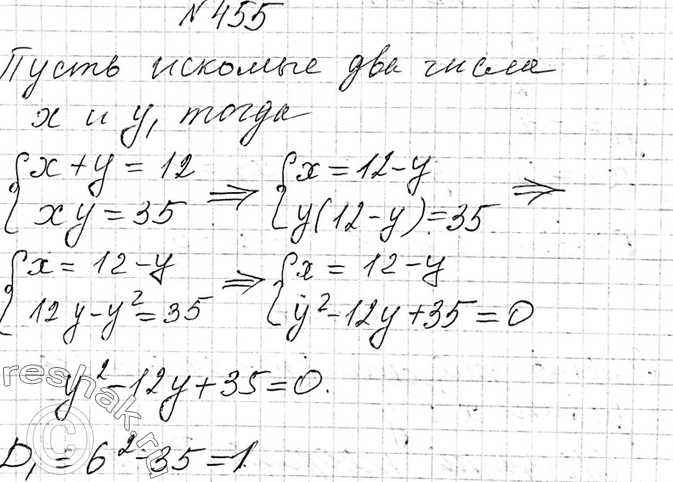 №455
Пусть искомые два числа
x и y, тогда
{x+y=12 ⇒ {x=12-y ⇒
{xy=35 {y(12-y)=35
{x=12-y ⇒ {x=12-y
{12y-y²=35 {y²-12y+35=0
y²-12y+35=0.
D₁=6²-35=1
reshak.ru
©